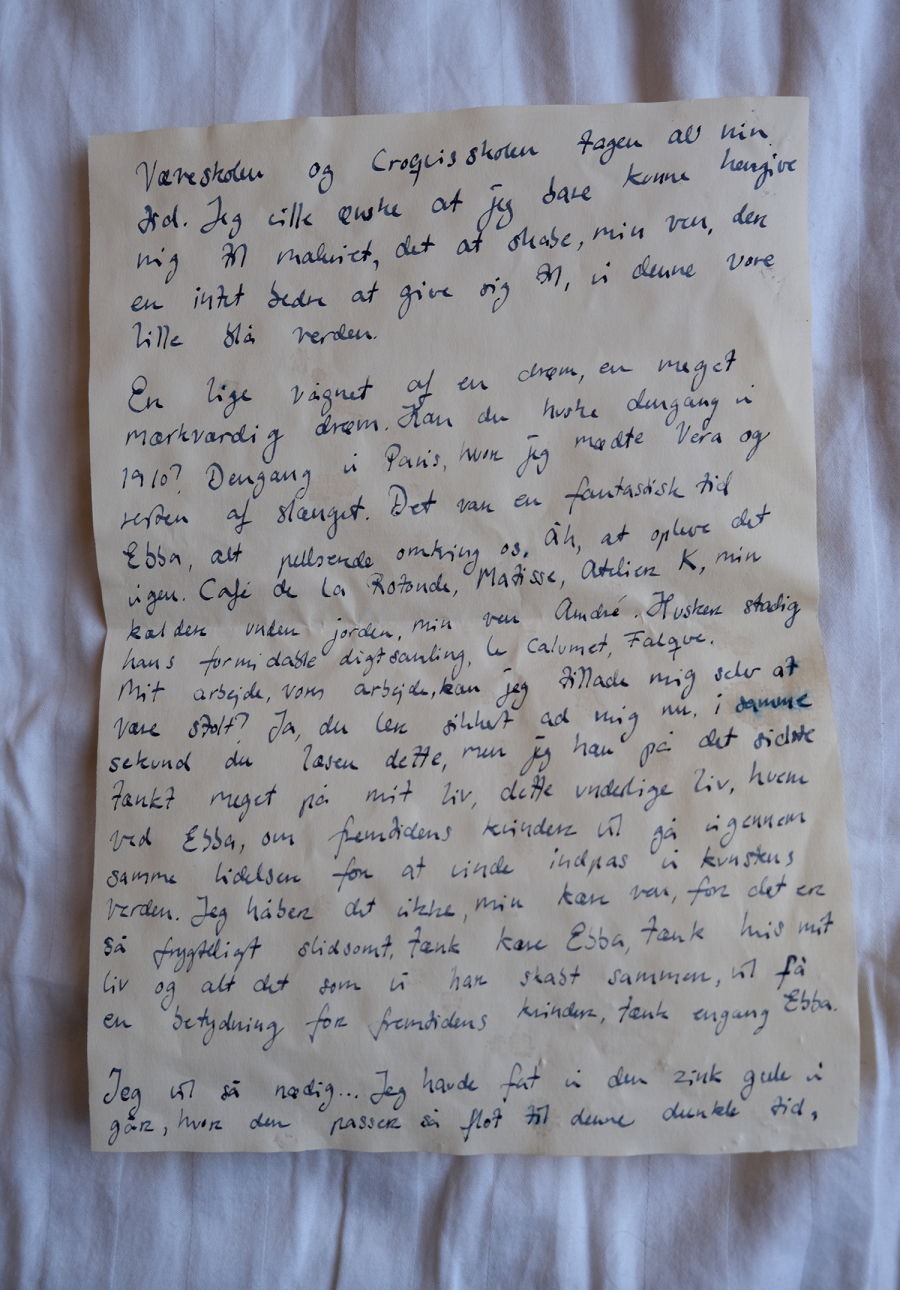 Væveskolen og Croquisskolen tagen al min
tid. Jeg ville ønske at jeg bare kunne hengive
mig til maleriet, det at skabe, min ven, den
en intet bedre at give sig til, i denne vore
lille blå verden.
En lige vågnet af en drøm, en meget
mærkværdig drøm. Kan du huske dengang i
1910? Dengang i Paris, hvor jeg mødte Vera og
resten af slænget. Det var en fantastisk tid
Ebba, alt omkring os. Åh, at opleve det
igen. Café de la Rotonde, Matisse, Atelier K, min
kælder under jorden, min ven André. Husker stadig
hans formidable digtsamling, le Calumet, Falque.
Mit arbejde, vores arbejde, kan jeg tillade mig selv at
være stolt? Ja, du ler sikkert ad mig nu, i samme
sekund du læser dette, men jeg har på det sidste
tænkt meget på mit liv, dette underlige liv, hvem
ved Ebba, om fremtidens kvinder vil gå igennem
samme lidelser for at vinde indpas i kunstens
verden. Jeg håber det ikke, min kære ven, for det er
så frygteligt slidsomt, tænk kære Ebba, tænk hvis mit
liv og alt det som vi har skabt sammen, vil få
en betydning for fremtidens kvinder, tænk engang Ebba.
Jeg vil så nødig... Jeg havde fat i den zink gule i
går, hvor den passer så flot til denne dunkle tid,